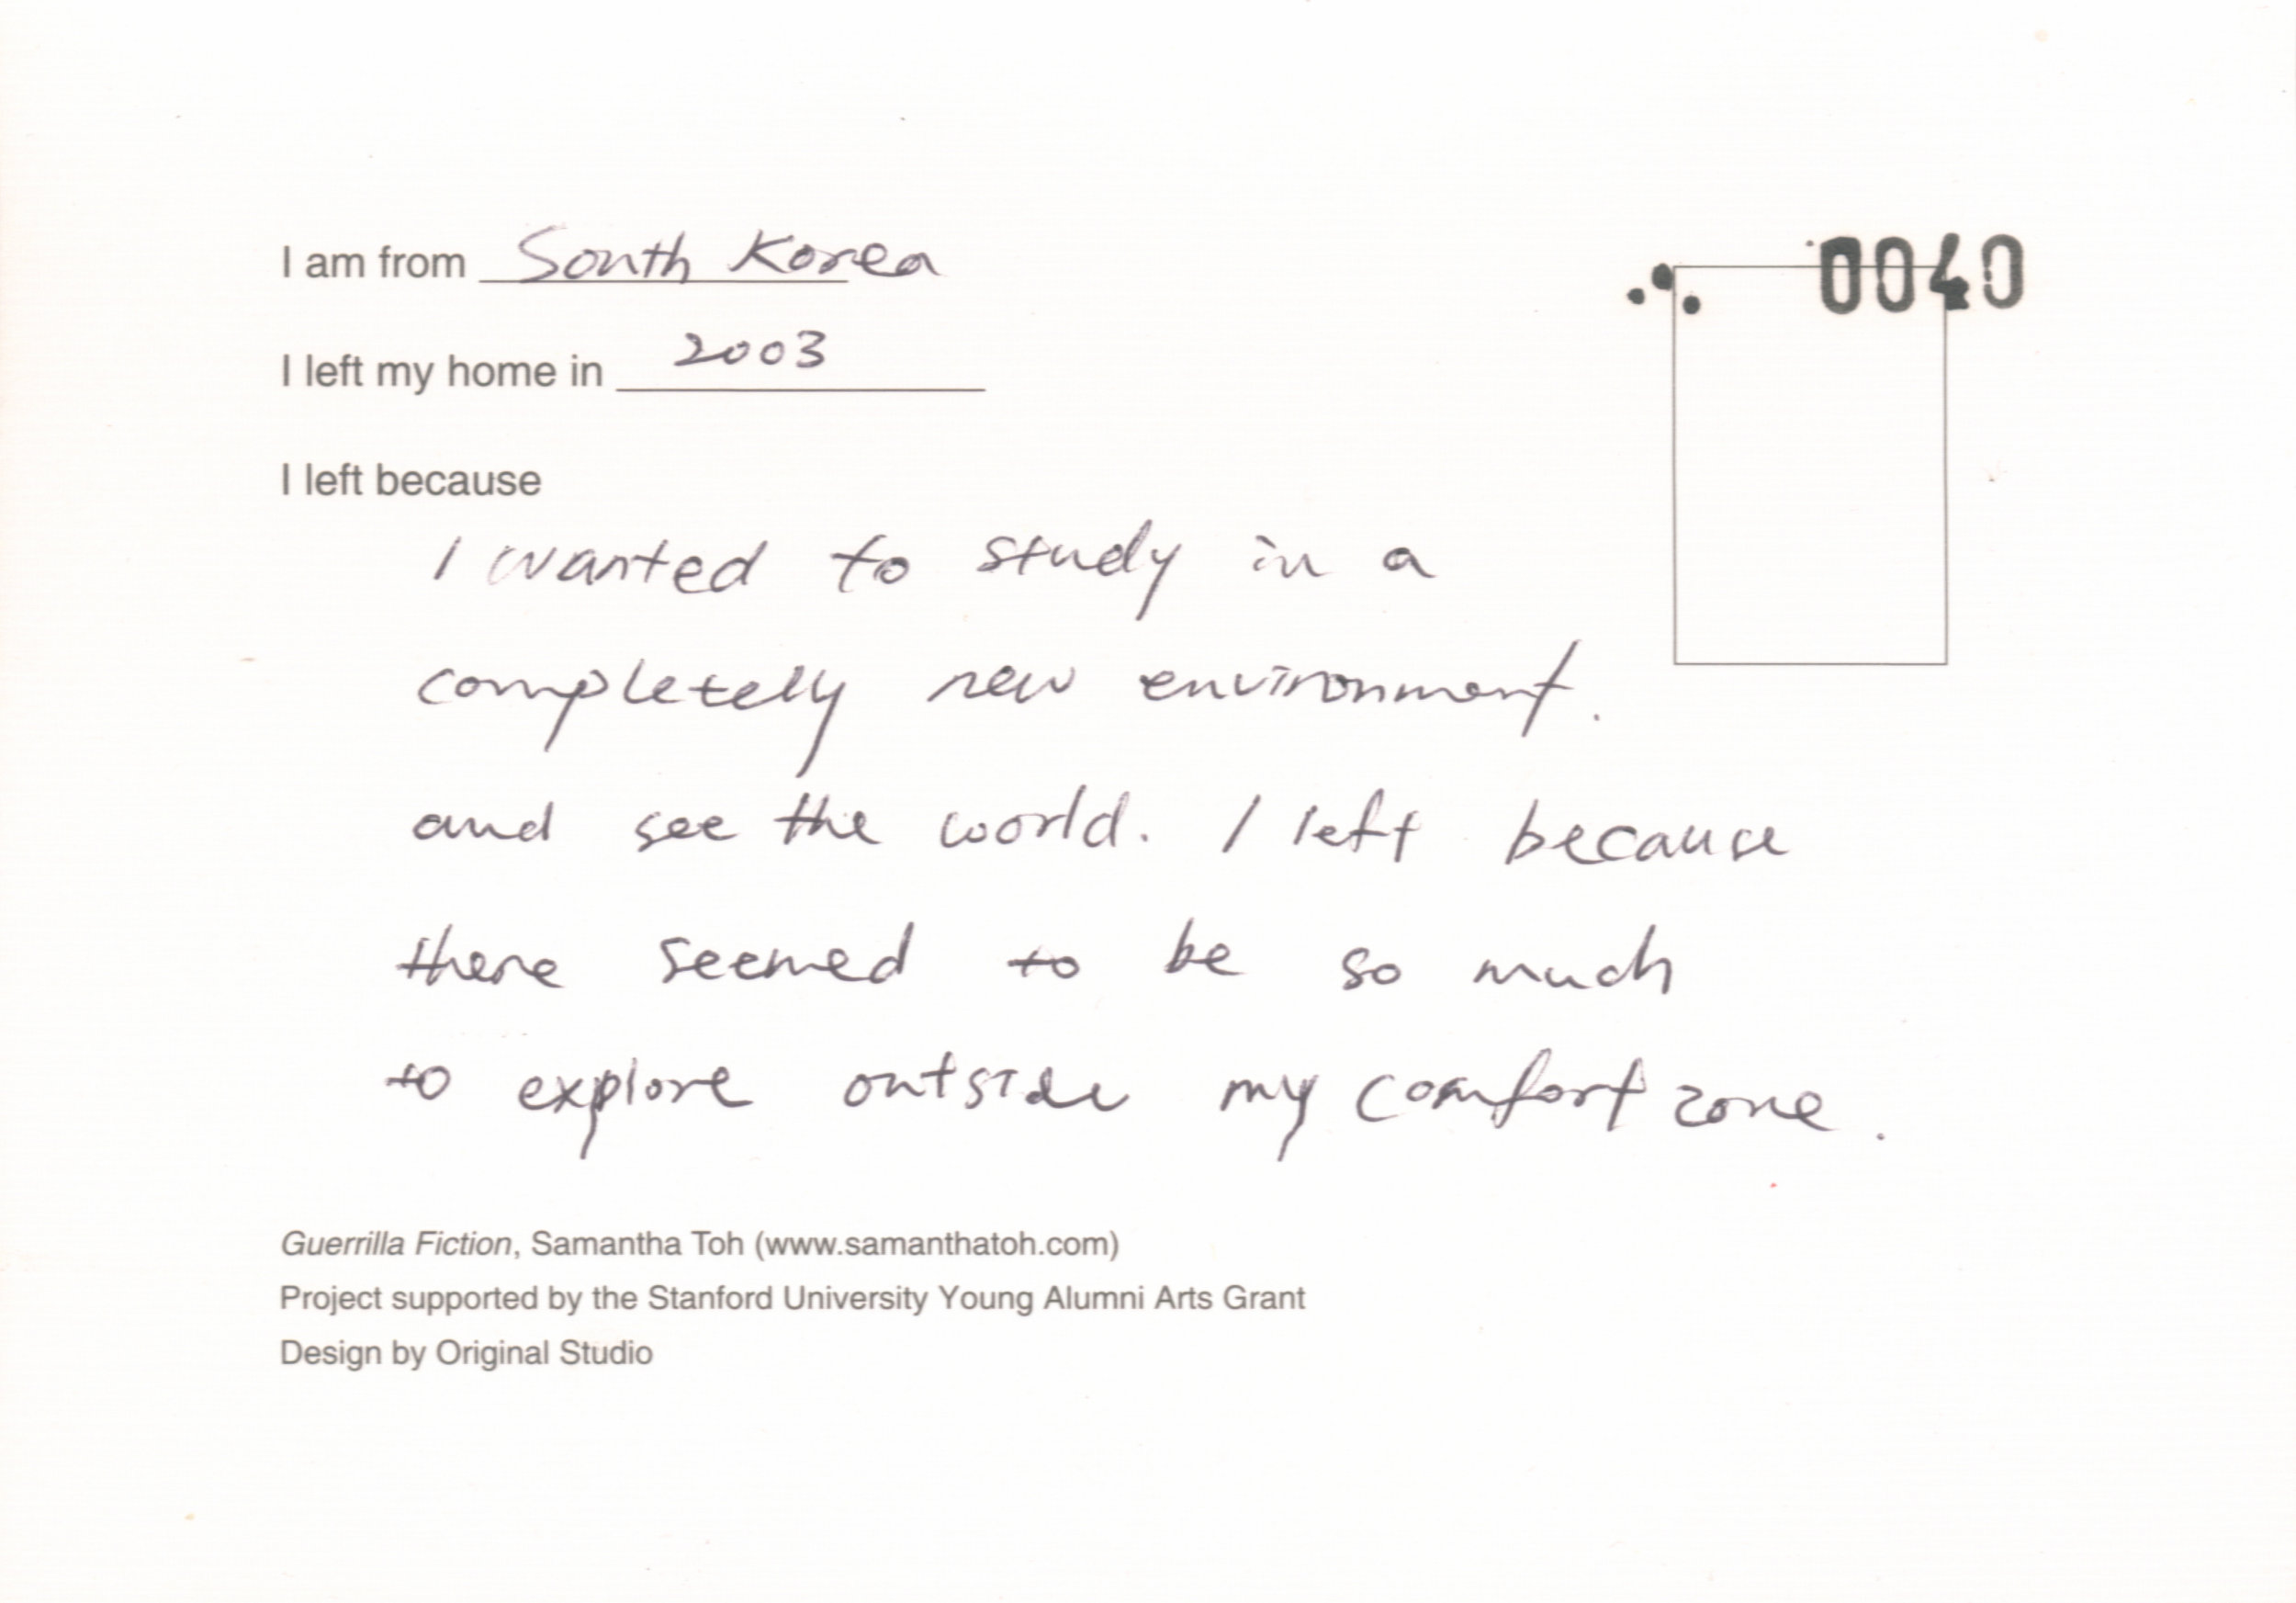 I am from South Korea
0040
I left my home in 2003
I left because
I wanted to study in a
completely new environment.
and see the world. I left because
there seemed to be so much
to explore outside my comfort zone.
Guerrilla Fiction, Samantha Toh (www.samanthatoh.com)
Project supported by the Stanford University Young Alumni Arts Grant
Design by Original Studio